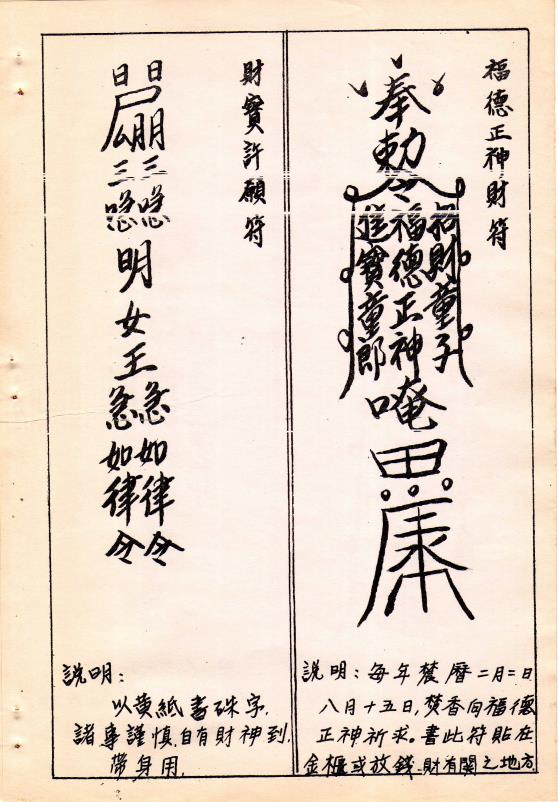 福德正神財符
奉勅令
招財童子
福德正神
進寶童郎
唵
説明：每年農曆二月二日
八月十五日,焚香向福德
正神祈求。書此符貼在
金櫃或放錢財有関之地方
財寶許願符
日日
朋
三三
明女王
急急如如律律令令
説明：
以黄紙書硃字,
諸事謹慎,自有財神到,
帶身用,